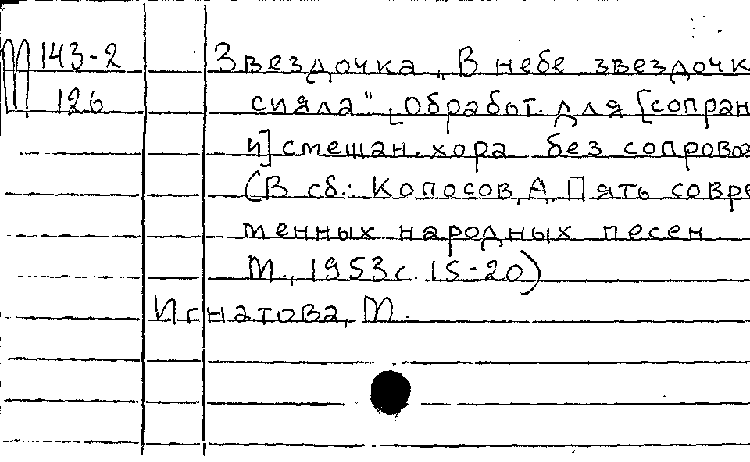 М 143-2 Звездочка „В небе звездочк
126 сияла" [Обработ. для [сопран
и] смешан. хора без сопровож
(В сб.: Колосов, А. Пять совре
менных народных песен
М., 1953 с. 15-20)
Игнатова, М.